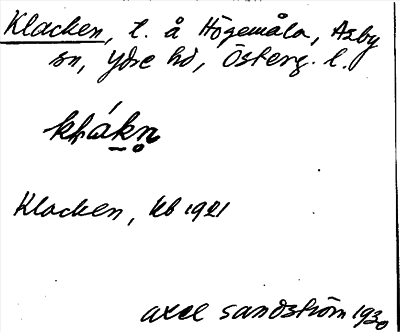 Klacken, t. å Högemåla, Asby
sn, Ydre hd, Österg. l.
Klacken, kb 1921
Axel Sandström 1930